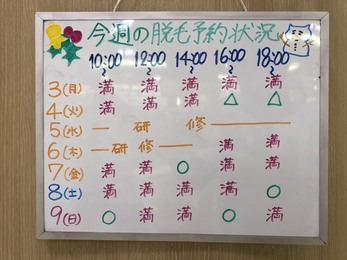 今週の脱毛予約状況
10:00 12:00 14:00 16:00 18:00
3(月) 満 満 満 満 満
4(火) 満 満 満 △ △
5(水) ー 研 修 ー
6(木) ー 研 修 ー 満 満
7(金) 満 満 ○ 満 満
8(土) 満 満 満 満 ○
9(日) ○ 満 満 ○ 満